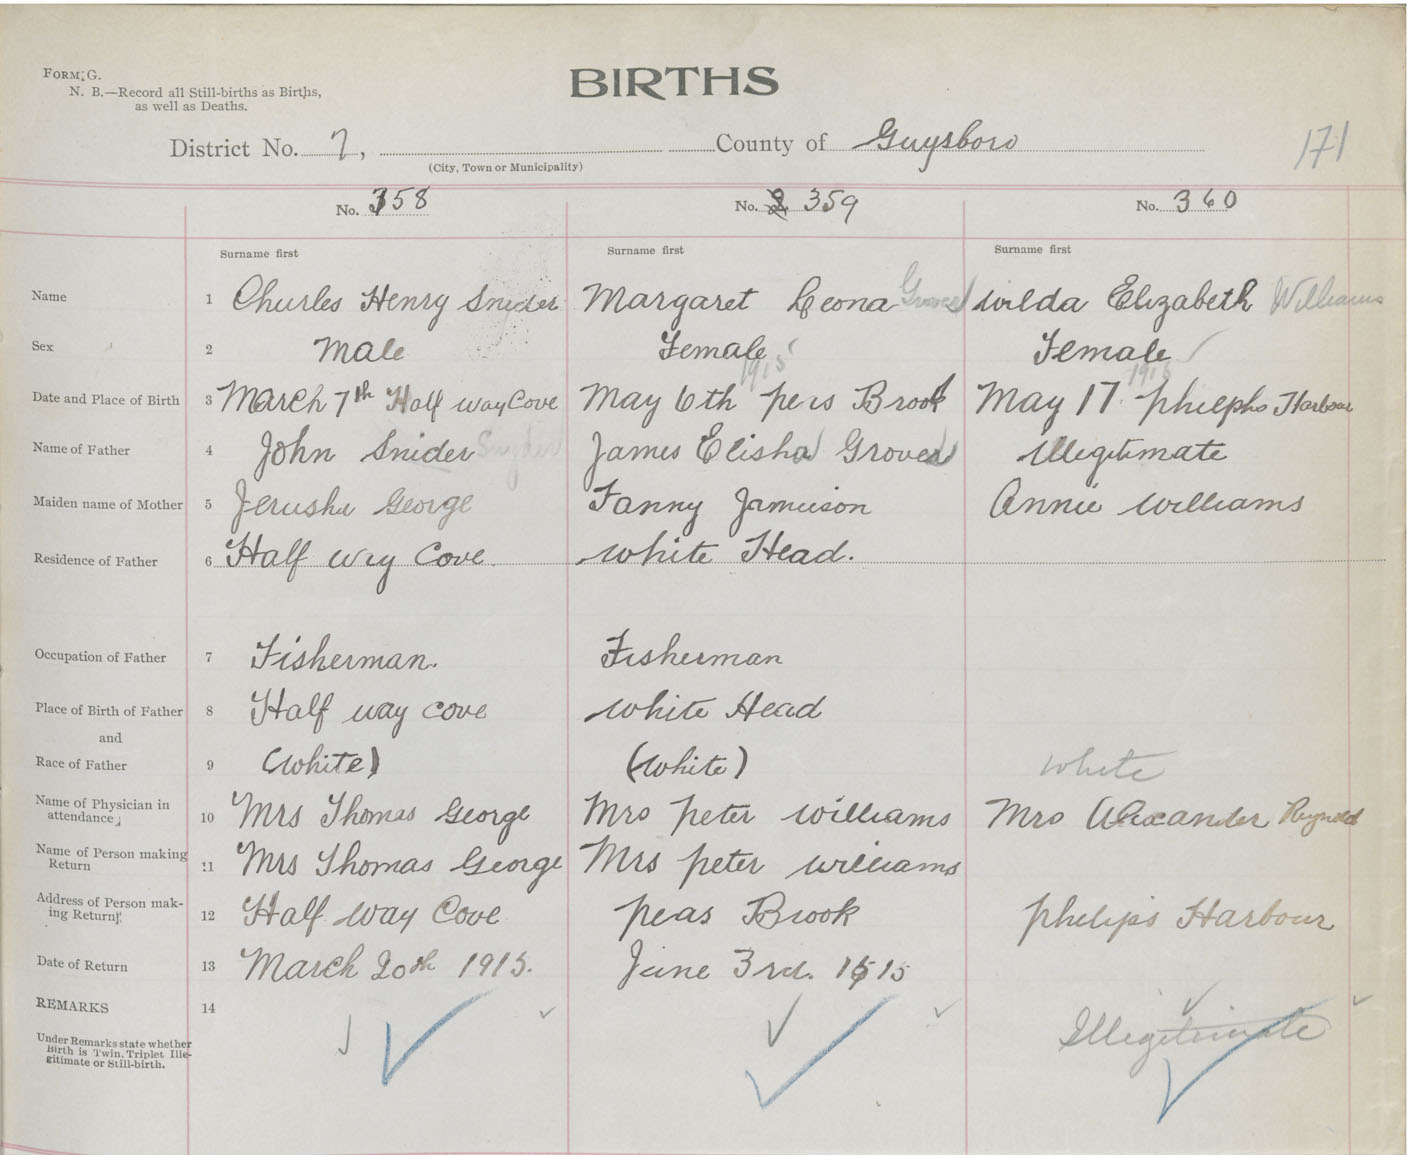 FORM G.
N. B.—Record all Still-births as Births,
as well as Deaths.
BIRTHS
District No. 7, County of Guysboro
(City, Town or Municipality)
171
No. 358 No. 2 359 No. 360
Surname first Surname first Surname first
Name 1 Charles Henry Snider Margaret Leona Groves Wilda Elizabeth Williams
Sex 2 Male Female Female
1915 1915
Date and Place of Birth 3 March 7th Half way Cove May 6th peis Brook May 17 philephs Harbour
Name of Father 4 John Snider Snyder James Elisha Groves Illegitimate
Maiden name of Mother 5 Jerusha George Fanny Jamieson Annie Williams
Residence of Father 6 Half way Cove White Head.
Occupation of Father 7 Fisherman. Fisherman
Place of Birth of Father 8 Half way cove White Head
and
Race of Father 9 (White) (White) white
Name of Physician in
attendance 10 Mrs Thomas George Mrs peter williams Mrs Alexander Reynold
Name of Person making
Return 11 Mrs Thomas George Mrs peter williams
Address of Person mak-
ing Return 12 Half Way Cove peas Brook philips Harbour
Date of Return 13 March 20th 1915. June 3rd. 1915
REMARKS 14 Illegitimate
Under Remarks state whether
Birth is Twin, Triplet Ille-
gitimate or Still-birth.